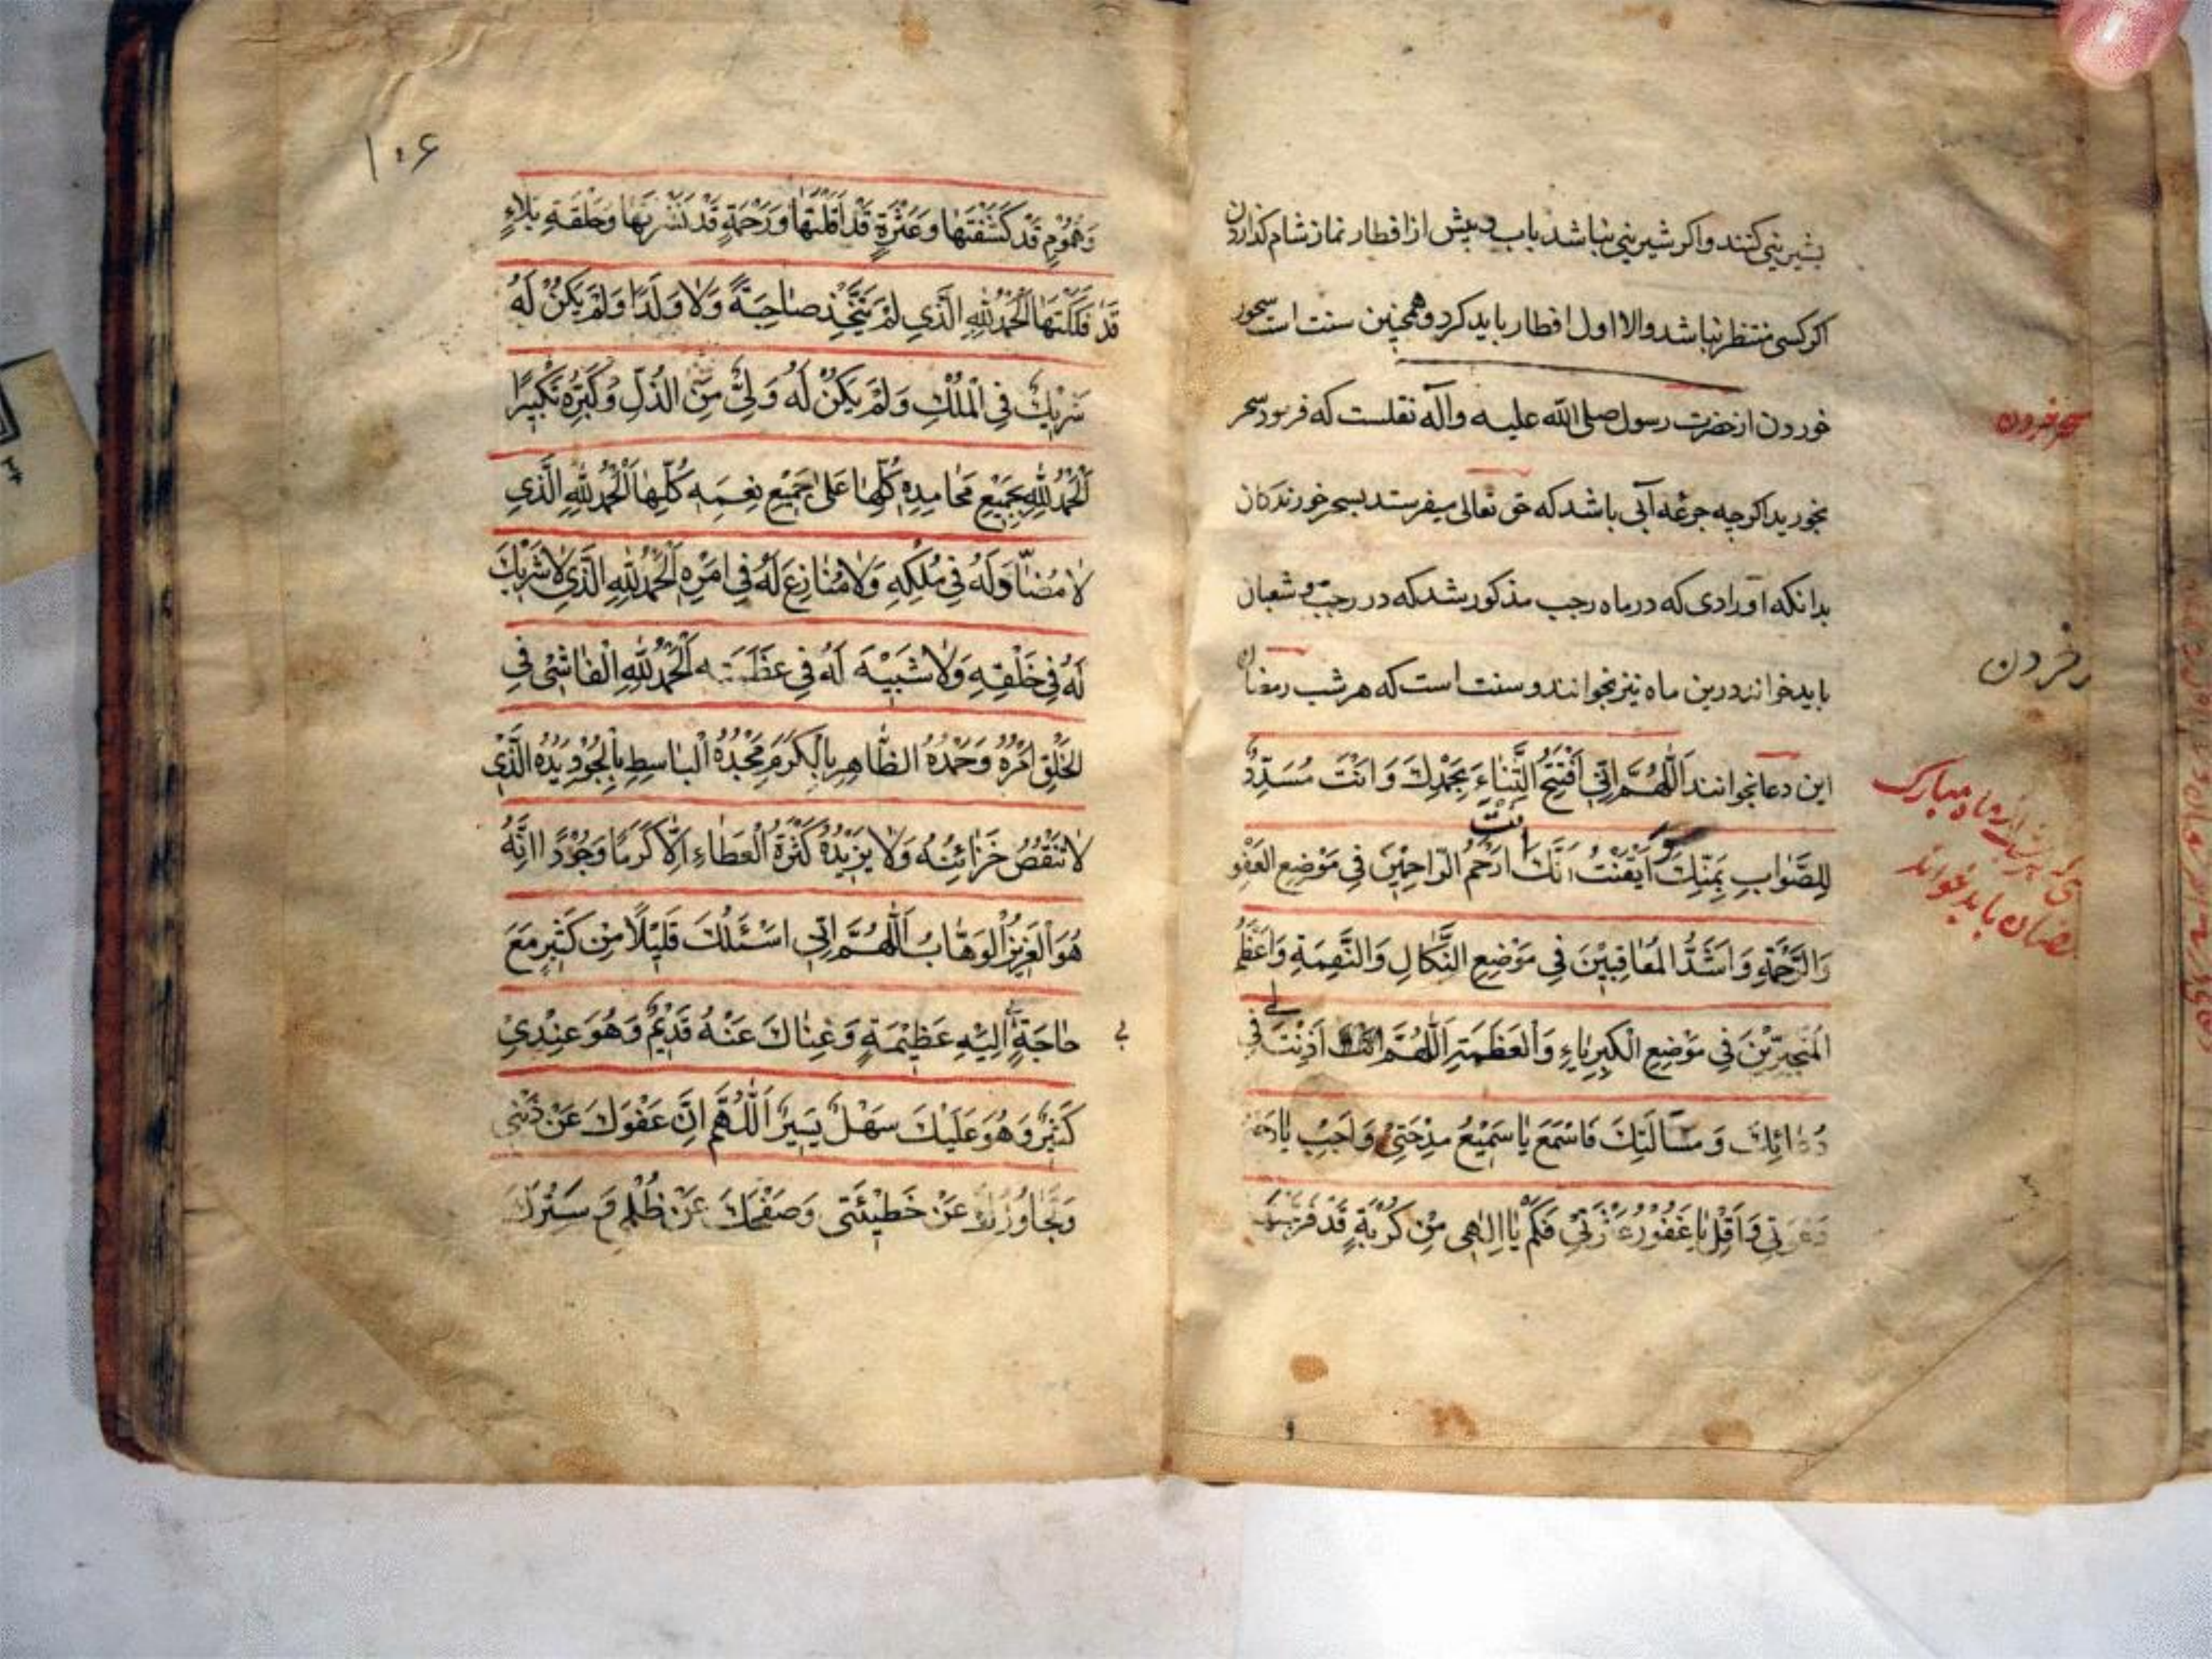 بشیرینی کنند و اکر شیرینی نباشد باب و پیش از افطار نماز شام کذارون
اکر کسی منتظر نباشد والا اول افطار باید کرد و همچنین سنت است سحور
خوردن از حضرت رسول صلی الله علیه و آله نقلست که فرمود سحر
سحر خوردن
بخورید اکرچه جرعه آبی باشد که حق تعالی میفرستد بسحر خورندکان
بدانکه اورادی که در ماه رجب مذکور شد که در رجب و شعبان
باید خوانند درین ماه نیز بخوانند و سنت است که هر شب رمضان
خردن
این دعا بخوانند اَللّٰهُمَّ اِنّی اَفْتَتِحُ الثَّنٰاءَ بِحَمْدِكَ وَ اَنْتَ مُسَدِّدٌ
ماه مبارک
باید خواند
لِلصَّوٰابِ بِمَنِّكَ وَ اَیْقَنْتُ اَنَّكَ اَنْتَ اَرْحَمُ الرّٰاحِمیْنَ فی مَوْضِعِ الْعَفْوِ
وَ الرَّحْمَةِ وَ اَشَدُّ الْمُعٰاقِبیْنَ فی مَوْضِعِ النَّكٰالِ وَ النَّقِمَةِ وَ اَعْظَمُ
الْمُتَجَبِّرِیْنَ فی مَوْضِعِ الْكِبْرِیٰاءِ وَ الْعَظَمَةِ اَللّٰهُمَّ اَذِنْتَ لی فی
دُعٰائِكَ وَ مَسْأَلَتِكَ فَاسْمَعْ یٰا سَمیْعُ مِدْحَتیْ وَ اَجِبْ یٰا رَحیمُ
دَعْوَتی وَ اَقِلْ یٰا غَفُوْرُ عَثْرَتیْ فَكَمْ یٰا اِلٰهی مِنْ كُرْبَةٍ قَدْ فَرَّجْتَهٰا
۱۰۶
وَ هُمُوْمٍ قَدْ كَشَفْتَهٰا وَ عَثْرَةٍ قَدْ اَقَلْتَهٰا وَ رَحْمَةٍ قَدْ نَشَرْتَهٰا وَ حَلْقَةِ بَلٰاءٍ
قَدْ فَكَكْتَهٰا اَلْحَمْدُ لِلّٰهِ الَّذی لَمْ یَتَّخِذْ صٰاحِبَةً وَ لٰا وَلَدًا وَ لَمْ یَكُنْ لَهُ
شَریْكٌ فی الْمُلْكِ وَ لَمْ یَكُنْ لَهُ وَلیٌّ مِنَ الذُّلِّ وَ كَبِّرْهُ تَكْبیْرًا
اَلْحَمْدُ لِلّٰهِ بِجَمیْعِ مَحٰامِدِهِ كُلِّهٰا عَلیٰ جَمیْعِ نِعَمِهِ كُلِّهٰا اَلْحَمْدُ لِلّٰهِ الَّذی
لٰا مُضٰادَّ لَهُ فی مُلْكِهِ وَ لٰا مُنٰازِعَ لَهُ فی اَمْرِهِ اَلْحَمْدُ لِلّٰهِ الَّذی لٰا شَریْكَ
لَهُ فی خَلْقِهِ وَ لٰا شَبیْهَ لَهُ فی عَظَمَتِهِ اَلْحَمْدُ لِلّٰهِ الْفٰاشی فی
الْخَلْقِ اَمْرُهُ وَ حَمْدُهُ الظّٰاهِرِ بِالْكَرَمِ مَجْدُهُ الْبٰاسِطِ بِالْجُوْدِ یَدُهُ الَّذیْ
لٰا تَنْقُصُ خَزٰائِنُهُ وَ لٰا یَزیْدُهُ كَثْرَةُ الْعَطٰاءِ اِلّٰا كَرَمًا وَ جُوْدًا اِنَّهُ
هُوَ الْعَزیْزُ الْوَهّٰابُ اَللّٰهُمَّ اِنّی اَسْئَلُكَ قَلیْلًا مِنْ كَثیْرٍ مَعَ
حٰاجَةٍ بی اِلَیْهِ عَظیْمَةٍ وَ غِنٰاكَ عَنْهُ قَدیْمٌ وَ هُوَ عِنْدیْ
كَثیْرٌ وَ هُوَ عَلَیْكَ سَهْلٌ یَسیْرٌ اَللّٰهُمَّ اِنَّ عَفْوَكَ عَنْ ذَنْبی
وَ تَجٰاوُزَكَ عَنْ خَطیْئَتی وَ صَفْحَكَ عَنْ ظُلْمی وَ سَتْرَكَ